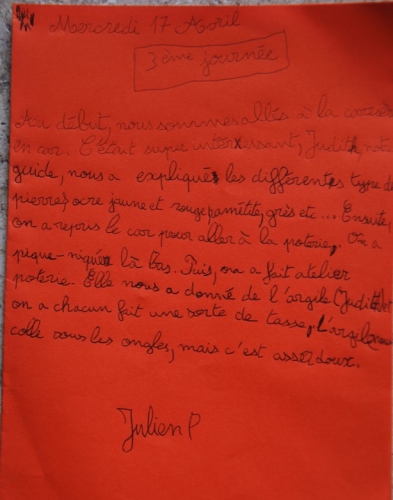 Mercredi 17 Avril
3ème journée
Au début, nous sommes allés à la
en car. C'était super intéressant, Judith, notre
guide, nous a expliqué les différentes type de
pierres, ocre jaune et rouge, grès etc... Ensuite,
on a repris le car pour aller à la poterie. On a
pique-niqué là bas. Puis, on a fait atelier
poterie. Elle nous a donné de l'argile (Judith) et
on a chacun fait une sorte de tasse, L'argile
colle sous les ongles, mais c'est assez doux.
Julien P